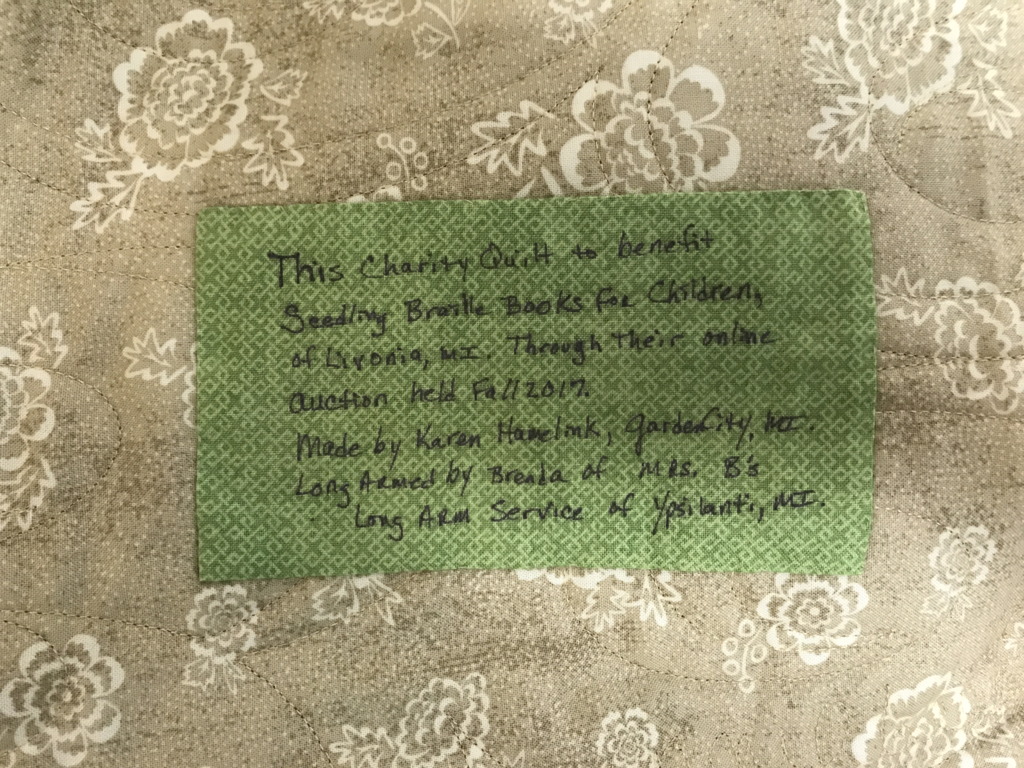 This Charity Quilt to benefit
Seedling Braille Books For Children,
of Livonia, MI. Through Their online
auction held Fall 2017.
Made by Karen Hamelink, Garden City, MI.
Long Armed by Brenda of MRS. B's
Long ARM Service of Ypsilanti, MI.